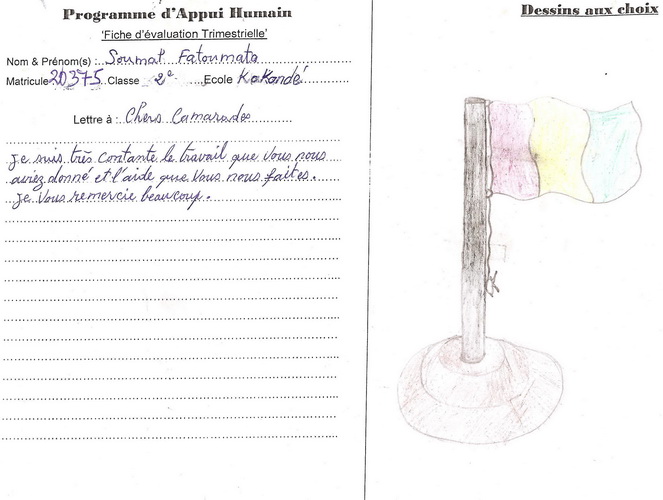 Programme d'Appui Humain
'Fiche d'évaluation Trimestrielle'
Nom & Prénom(s) :..Soumat Fatoumata
Matricule 20375 Classe 2e Ecole Kakandé
Lettre à : Chers Camarades
je suis très contante le travail que vous nous
aviez donné et l'aide que vous nous faites.
je vous remercie beaucoup.
Dessins aux choix